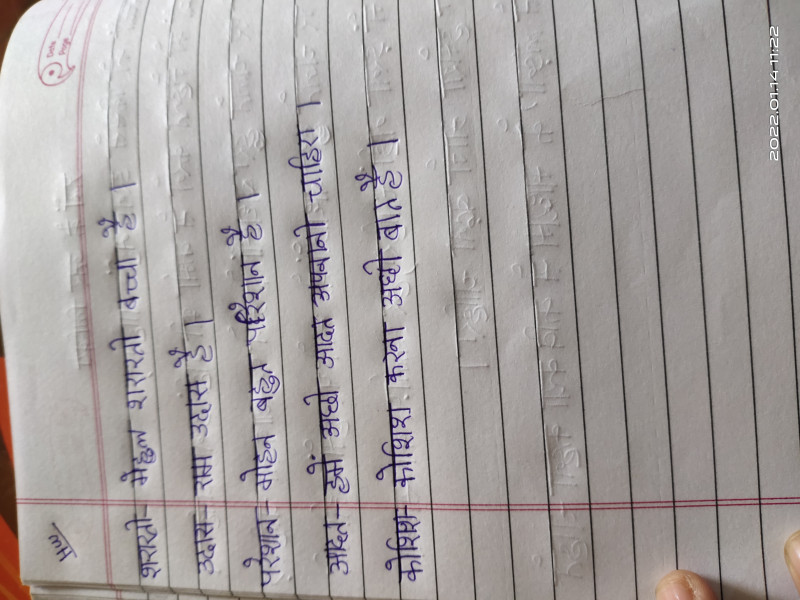 Date
Page
HW
शरारती- मेहुल शरारती बच्चा है ।
उदास- राम उदास है ।
परेशान- मोहन बहुत परेिशान है ।
आदत- हमें अच्छी आदत अपनानी चाहिरा ।
कोशिश- कोशिश करना अछी बात है ।
2022.01.14 11:22